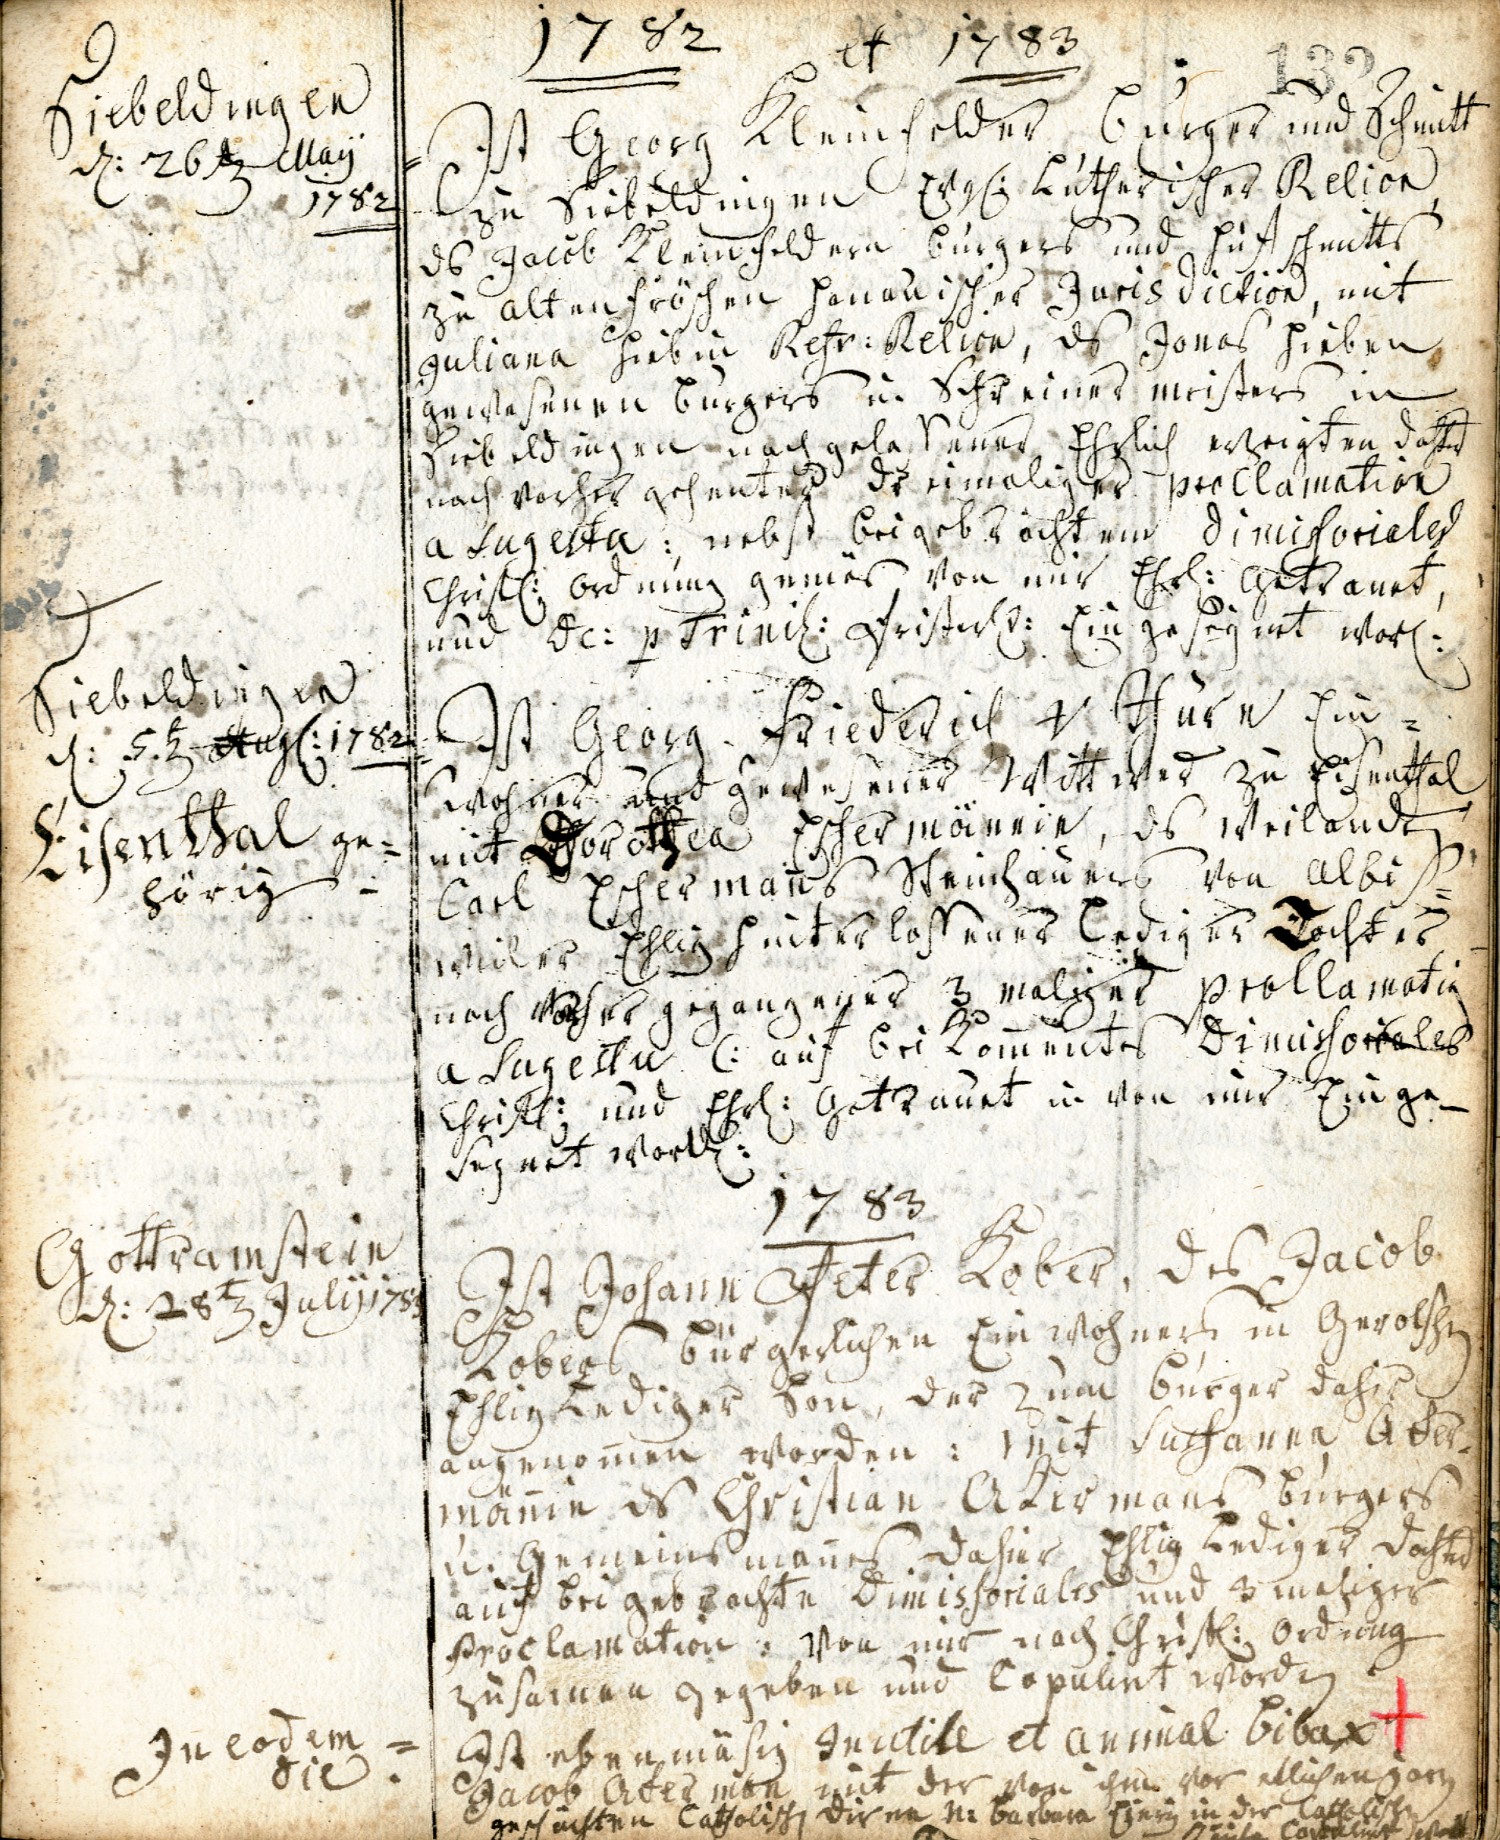 1782 et 1783
132
Siebeldingen
d: 26t May
1782
Ist Georg Kleinfelder burger und Schmitt
zu Siebeldingen Evgl: Lutherischer Relion,
ds Jacob Kleinfeldern burgers und hufschmitts
zu altenfröschen hanauischer Jurisdiction, mit
Juliana hiebin Refr: Relion, ds Jonas hieben
gewesenen burgers u. Schreiner meisters in
Siebeldingen nachgelassener Ehrlich erzeigten
nach vorher gehenter dreimaliger proclamation
a sugestu: nebst beigebrachtem dimissoriales
Christl: ordnung gemäs von mir Ehrl: Getrauet,
und p Trinit: Eingesegnet word:
Siebeldingen
d: 5t Augl: 1782
Eisenthal ge=
hörig -
Ist Georg Friederich Ein=
wohner und gewesener Wittwer zu Eisenthal
mit Dorothea Eschermännin, ds weiland
Carl Eschermanns Steinhauers von albis=
wieler Ehlig hinterlassener Lediger Tochter
nach vorher gegangener 3 maliger proclamatio
a sugestu C: auf beikommentes Dimissoriales
Christl: und Ehrl: Getrauet u von mir Einge-
segnet word:
1783
Gottramstein
d: 28t Julij 1783
Ist Johann Peter Kober, des Jacob
Kobers bürgerlichen Einwohners in
Ehlig Lediger Son, der zum burger dahir
angenomen worden: mit Susanna Aker-
mänin ds Christian Akermans burgers
u. Gemeinsmanns dahier Ehlig Lediger dochter
auf beigebrachte Dimissoriales und 3 maliger
Proclamation: von mir nach Christl: ordnung
zusamen gegeben und Copulirt worden
In eodem =
die :
Ist ebenmäsig Inutile et animal bibax
Jacob Akerman mit der von ihm vor etlichen jaren
Catholisch dirne N: barbara in der Catholischen